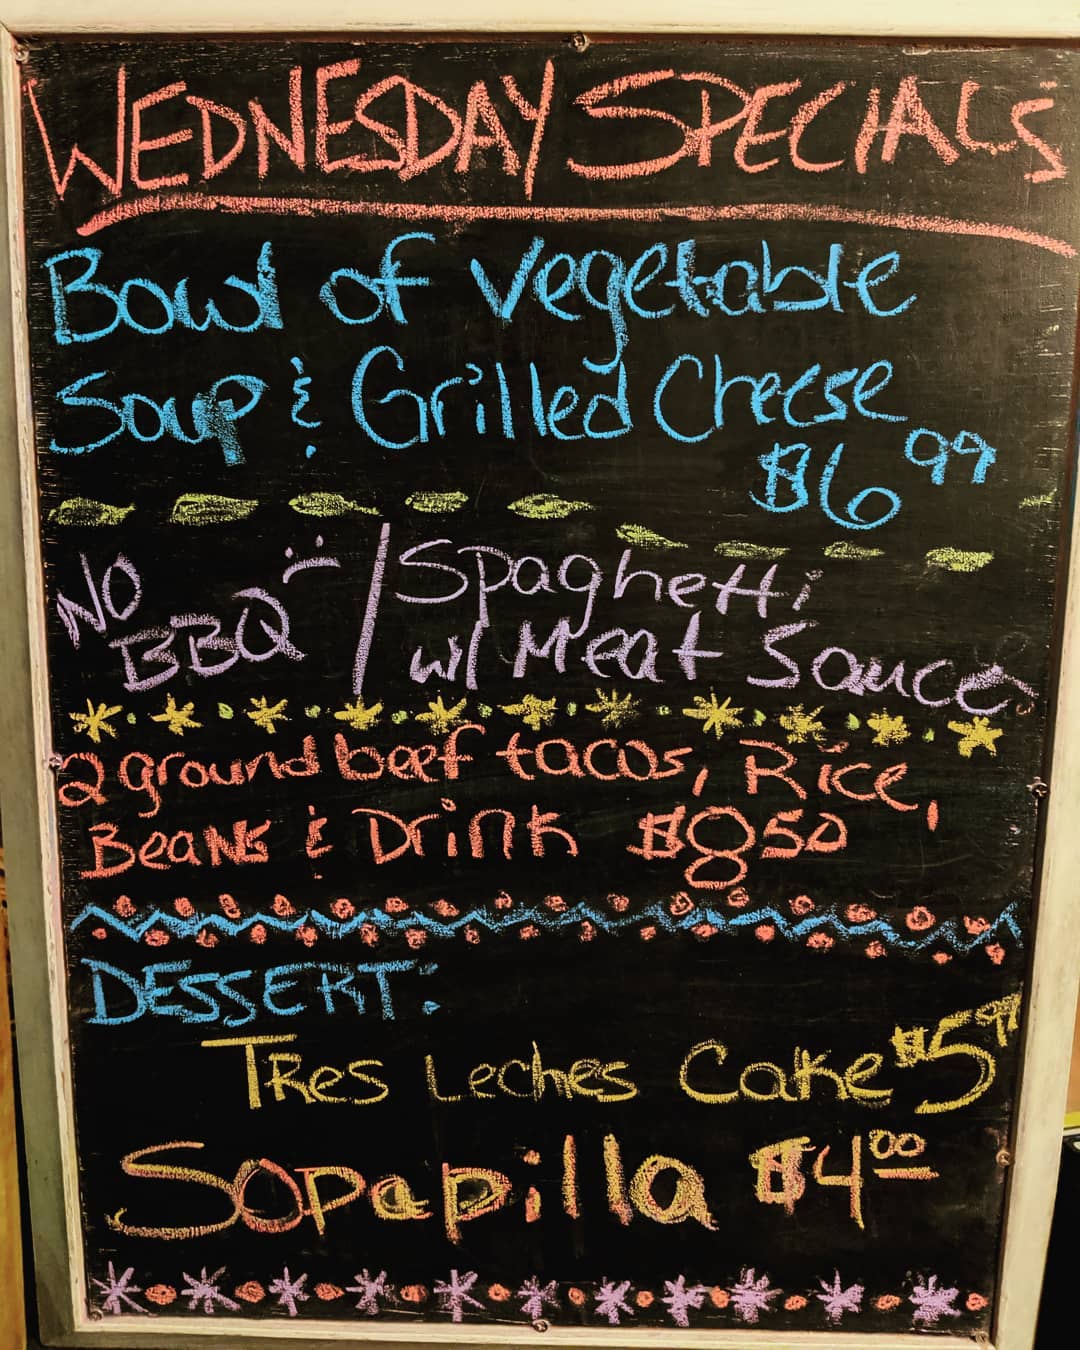 WEDNESDAY SPECIALS
Bowl of vegetable
Soup & Grilled Cheese
$6.99
NO
BBQ :( / Spaghetti
w/ Meat Sauce
2 ground beef tacos, Rice,
Beans & Drink $8.50
DESSERT:
Tres Leches Cake $5.99
Sopapilla $4.00